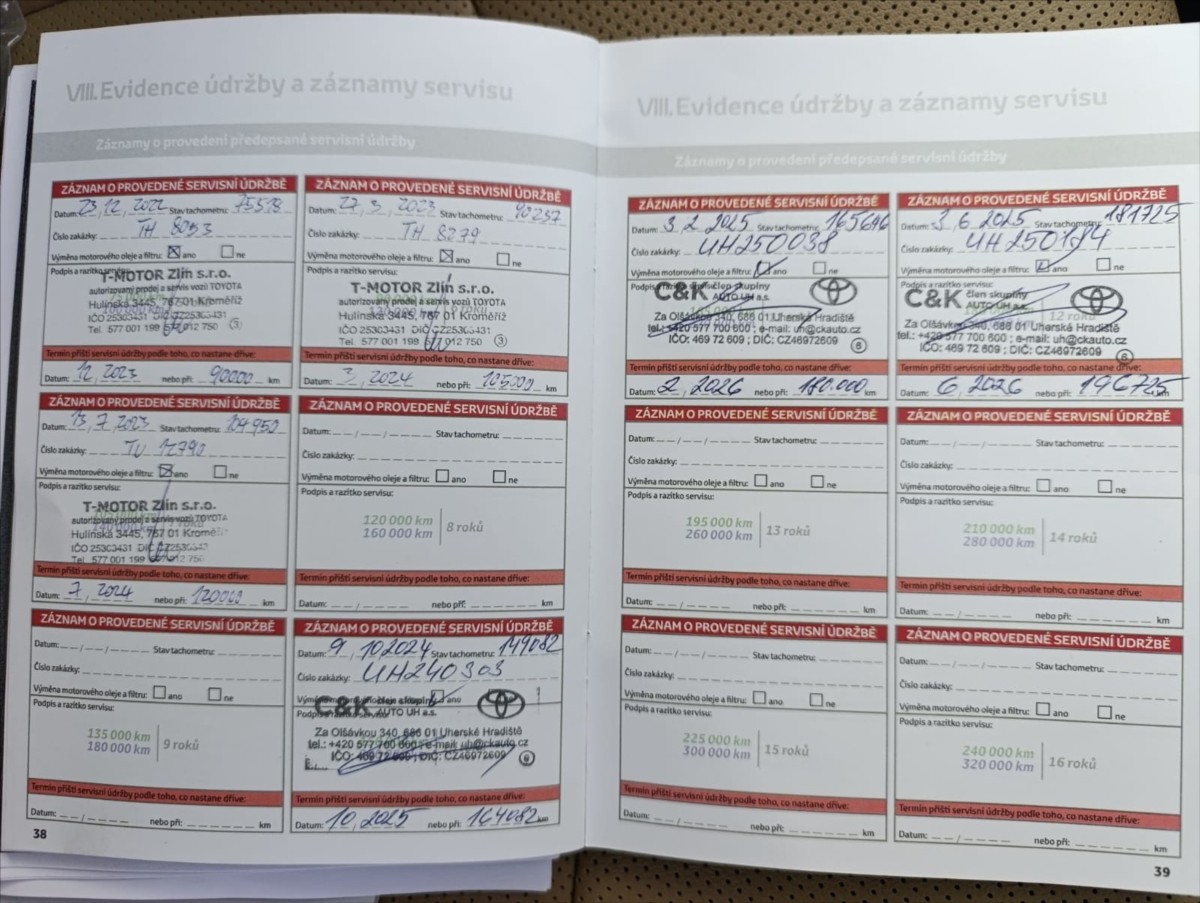 VIII. Evidence údržby a záznamy servisu
Záznamy o provedení předepsané servisní údržby
ZÁZNAM O PROVEDENÉ SERVISNÍ ÚDRŽBĚ
Datum: 23, 12, 2022 Stav tachometru: 75519
Číslo zakázky: TH 8053
Výměna motorového oleje a filtru: ano ne
Podpis a razítko servisu:
T-MOTOR Zlín s.r.o.
autorizovaný prodej a servis vozů TOYOTA
Hulínská 3445, 767 01 Kroměříž
IČO 25303431 DIČ CZ25303431
Tel. 577 001 199 012 750 3
Termín příští servisní údržby podle toho, co nastane dříve:
Datum: 12, 2023 nebo při: 90000 km
ZÁZNAM O PROVEDENÉ SERVISNÍ ÚDRŽBĚ
Datum: 27, 3, 2023 Stav tachometru: 90237
Číslo zakázky: TH 8279
Výměna motorového oleje a filtru: ano ne
Podpis a razítko servisu:
T-MOTOR Zlín s.r.o.
autorizovaný prodej a servis vozů TOYOTA
Hulínská 3445, 767 01 Kroměříž
IČO 25303431 DIČ CZ25303431
Tel. 577 001 199 012 750 3
Termín příští servisní údržby podle toho, co nastane dříve:
Datum: 3, 2024 nebo při: 105000 km
ZÁZNAM O PROVEDENÉ SERVISNÍ ÚDRŽBĚ
Datum: 13, 7, 2023 Stav tachometru: 104950
Číslo zakázky: TU 12790
Výměna motorového oleje a filtru: ano ne
Podpis a razítko servisu:
T-MOTOR Zlín s.r.o.
autorizovaný prodej a servis vozů TOYOTA
Hulínská 3445, 767 01
IČO 25303431 DIČ
Tel. 577 001 199 012 750
Termín příští servisní údržby podle toho, co nastane dříve:
Datum: 7, 2024 nebo při: km
ZÁZNAM O PROVEDENÉ SERVISNÍ ÚDRŽBĚ
Datum: Stav tachometru:
Číslo zakázky:
Výměna motorového oleje a filtru: ano ne
Podpis a razítko servisu:
120 000 km
160 000 km
8 roků
Termín příští servisní údržby podle toho, co nastane dříve:
Datum: nebo při: km
ZÁZNAM O PROVEDENÉ SERVISNÍ ÚDRŽBĚ
Datum: Stav tachometru:
Číslo zakázky:
Výměna motorového oleje a filtru: ano ne
Podpis a razítko servisu:
135 000 km
180 000 km
9 roků
Termín příští servisní údržby podle toho, co nastane dříve:
Datum: nebo při: km
ZÁZNAM O PROVEDENÉ SERVISNÍ ÚDRŽBĚ
Datum: 9, 10 2024 Stav tachometru: 149082
Číslo zakázky: UH240303
Výměna motorového oleje a filtru: ano
C&K člen skupiny
AUTO UH a.s.
Za Olšávkou 340, 686 01 Uherské Hradiště
tel.: +420 577 700 600 ; e-mail: uh@ckauto.cz
IČO: 469 72 609 ; DIČ: CZ46972609 6
Termín příští servisní údržby podle toho, co nastane dříve:
Datum: 10, 2025 nebo při: 164082 km
38
VIII. Evidence údržby a záznamy servisu
Záznamy o provedení předepsané servisní údržby
ZÁZNAM O PROVEDENÉ SERVISNÍ ÚDRŽBĚ
Datum: 3. 2 2025 Stav tachometru: 165646
Číslo zakázky: UH250038
Výměna motorového oleje a filtru: ano ne
Podpis a razítko servisu:
C&K člen skupiny
AUTO UH a.s.
Za Olšávkou 340, 686 01 Uherské Hradiště
tel.: +420 577 700 600 ; e-mail: uh@ckauto.cz
IČO: 469 72 609 ; DIČ: CZ46972609 6
Termín příští servisní údržby podle toho, co nastane dříve:
Datum: 2, 2026 nebo při: 180.000 km
ZÁZNAM O PROVEDENÉ SERVISNÍ ÚDRŽBĚ
Datum: 3, 6 2025 Stav tachometru: 181725
Číslo zakázky:
Výměna motorového oleje a filtru: ano ne
Podpis a razítko servisu:
C&K člen skupiny
AUTO UH a.s.
12 roků
Za Olšávkou 340, 686 01 Uherské Hradiště
tel.: +420 577 700 600 ; e-mail: uh@ckauto.cz
IČO: 469 72 609 ; DIČ: CZ46972609 6
Termín příští servisní údržby podle toho, co nastane dříve:
Datum: 6, 2026 nebo při: 196725 km
ZÁZNAM O PROVEDENÉ SERVISNÍ ÚDRŽBĚ
Datum: Stav tachometru:
Číslo zakázky:
Výměna motorového oleje a filtru: ano ne
Podpis a razítko servisu:
195 000 km
260 000 km
13 roků
Termín příští servisní údržby podle toho, co nastane dříve:
Datum: nebo při: km
ZÁZNAM O PROVEDENÉ SERVISNÍ ÚDRŽBĚ
Datum: Stav tachometru:
Číslo zakázky:
Výměna motorového oleje a filtru: ano ne
Podpis a razítko servisu:
210 000 km
280 000 km
14 roků
Termín příští servisní údržby podle toho, co nastane dříve:
Datum: nebo při: km
ZÁZNAM O PROVEDENÉ SERVISNÍ ÚDRŽBĚ
Datum: Stav tachometru:
Číslo zakázky:
Výměna motorového oleje a filtru: ano ne
Podpis a razítko servisu:
225 000 km
300 000 km
15 roků
Termín příští servisní údržby podle toho, co nastane dříve:
Datum: nebo při: km
ZÁZNAM O PROVEDENÉ SERVISNÍ ÚDRŽBĚ
Datum: Stav tachometru:
Číslo zakázky:
Výměna motorového oleje a filtru: ano ne
Podpis a razítko servisu:
240 000 km
320 000 km
16 roků
Termín příští servisní údržby podle toho, co nastane dříve:
Datum: nebo při: km
39